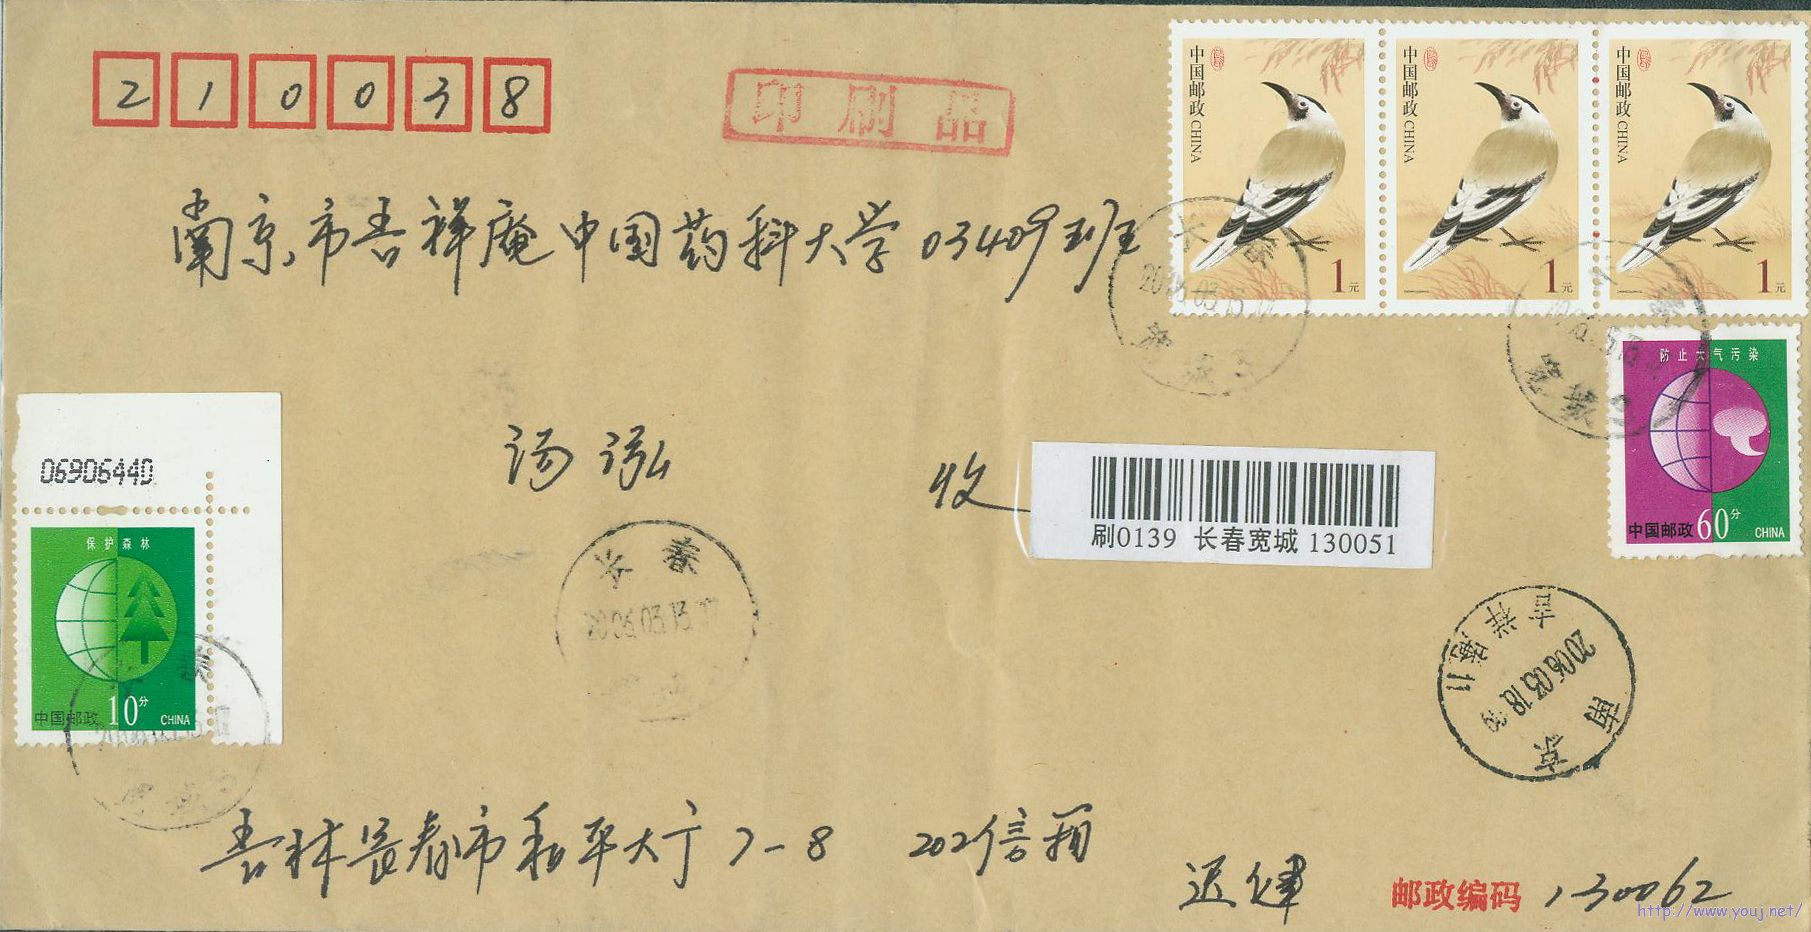 210038
印刷品
中国邮政 CHINA
1元
中国邮政 CHINA
1元
中国邮政 CHINA
1元
南京市吉祥庵中国药科大学03409班
防止大气污染
中国邮政 60分 CHINA
汤泓 收
刷0139 长春宽城 130051
06906440
保护森林
中国邮政 10分 CHINA
长春
2006.03.13.17
长春
2006.03.13.17
南京
2006.03.18
吉祥庵
吉林长春市和平大厅7-8 202信箱
迟健 邮政编码 130062
http://www.youj.net/